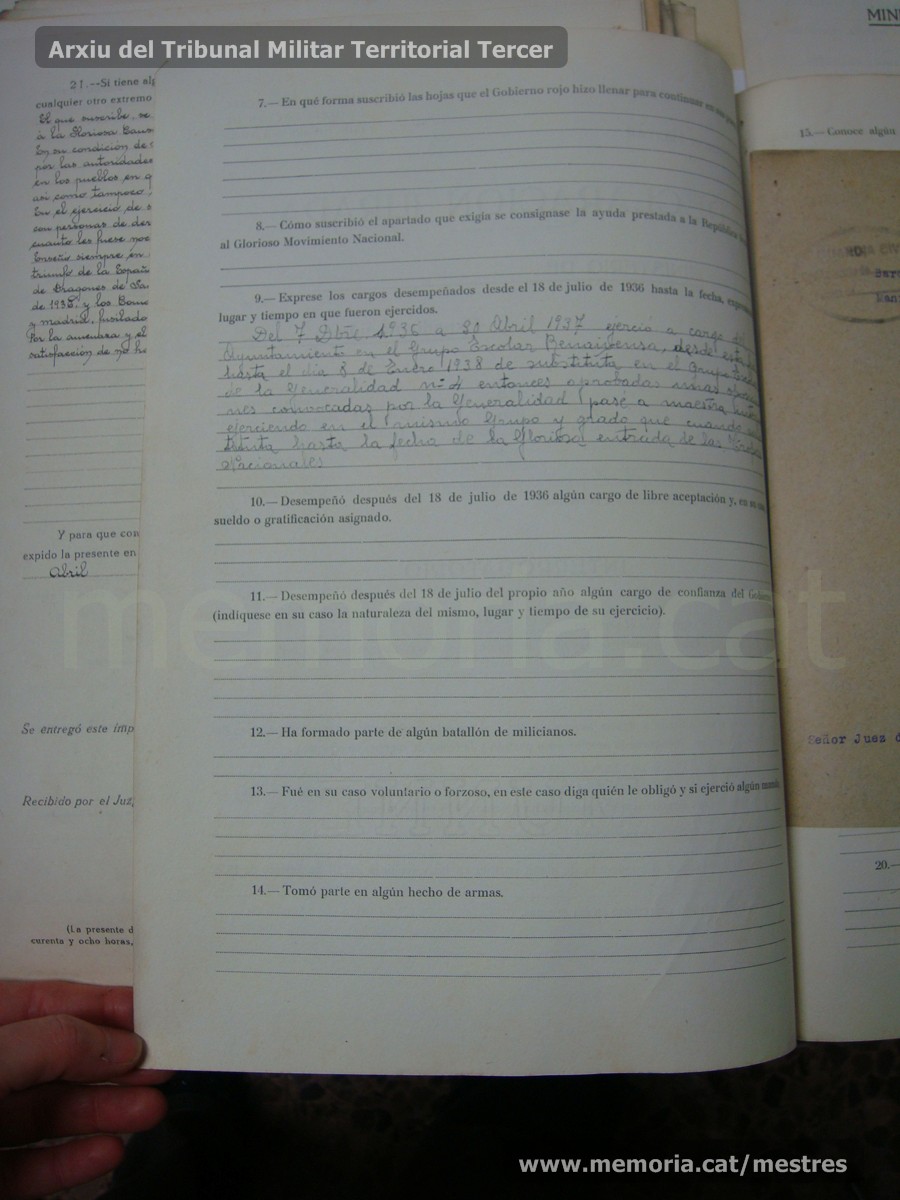 Arxiu del Tribunal Militar Territorial Tercer
MIN
21.--Si tiene alg
cualquier otro extremo
El que suscribe, se
á la Gloriosa Caus
En su condición de
por las autoridades
en los pueblos en q
asi como tampoco
En el ejercicio de s
con personas de der
cuanto les fuese
Enseño siempre en
triunfo de la España
de Dragones de
de 1936, y los
y Madrid, fusilado
Por la amenaza y el
satisfacción de no h
Y para que con
expido la presente en
Abril
Se entregó este imp
Recibido por el Juz
(La presente d
curenta y ocho horas,
7.— En qué forma suscribió las hojas que el Gobierno rojo hizo llenar para continuar en
8.— Cómo suscribió el apartado que exigía se consignase la ayuda prestada a la República
al Glorioso Movimiento Nacional.
9.— Exprese los cargos desempeñados desde el 18 de julio de 1936 hasta la fecha,
lugar y tiempo en que fueron ejercidos.
Del 7 Dbre 1936 a 30 Abril 1937 ejerció a cargo
Ayuntamiento en el Grupo Escolar Renaixensa, desde esta
hasta el dia 8 de Enero 1938 de substituta en el Grupo
de la Generalidad nº 4 entonces aprobadas unas
nes convocadas por la Generalidad pasé a maestra
ejerciendo en el mismo Grupo y grado que cuando
tituta hasta la fecha de la Gloriosa entrada de las
Nacionales
10.— Desempeñó después del 18 de julio de 1936 algún cargo de libre aceptación y, en su
sueldo o gratificación asignado.
11.— Desempeñó después del 18 de julio del propio año algún cargo de confianza del
(indíquese en su caso la naturaleza del mismo, lugar y tiempo de su ejercicio).
12.— Ha formado parte de algún batallón de milicianos.
13.— Fué en su caso voluntario o forzoso, en este caso diga quién le obligó y si ejerció algún mando
14.— Tomó parte en algún hecho de armas.
15.— Conoce algún
Señor Juez
20.—
memoria.cat
www.memoria.cat/mestres